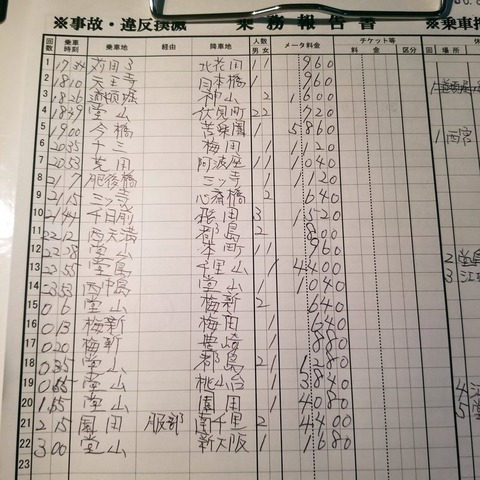 ※事故・違反撲滅 乗務報告書 ※乗車拒
回数 乗車時刻 乗車地 経由 降車地 人数 男 女 メータ料金 チケット等 料金 区分 回 場所
1 17 苅田3 北花田 1 1 960
2 1810 天王寺 日本橋 1 960
3 1826 道頓堀 2 1600
4 1849 堂山 伏見町 2 2 720
5 1900 今橋 苦楽園 1 5860 1 西宮
6 2035 十三 梅田 1 1 1120
7 2053 阿波座 1 1 1040
8 21 7 肥後橋 三ッ寺 1 1120
9 2115 三ッ寺 心斎橋 2 640
10 2144 千日前 3 1520
11 2212 西天満 都島 1 800
12 2228 堂山 本町 1 1 960
13 2255 堂島 千里山 1 4400 2 堂島
14 2353 西中島 堂山 1 1040 3 江
15 0 6 堂山 梅新 2 640
16 013 梅新 梅田 1 640
17 020 梅新 豊崎 1 880
18 035 堂山 都島 2 1 1280
19 055 堂山 桃山台 1 3840
20 155 堂山 園田 1 4080 4
21 215 園田 服部 南千里 2 4400 5
22 300 堂山 新大阪 1 1680
23